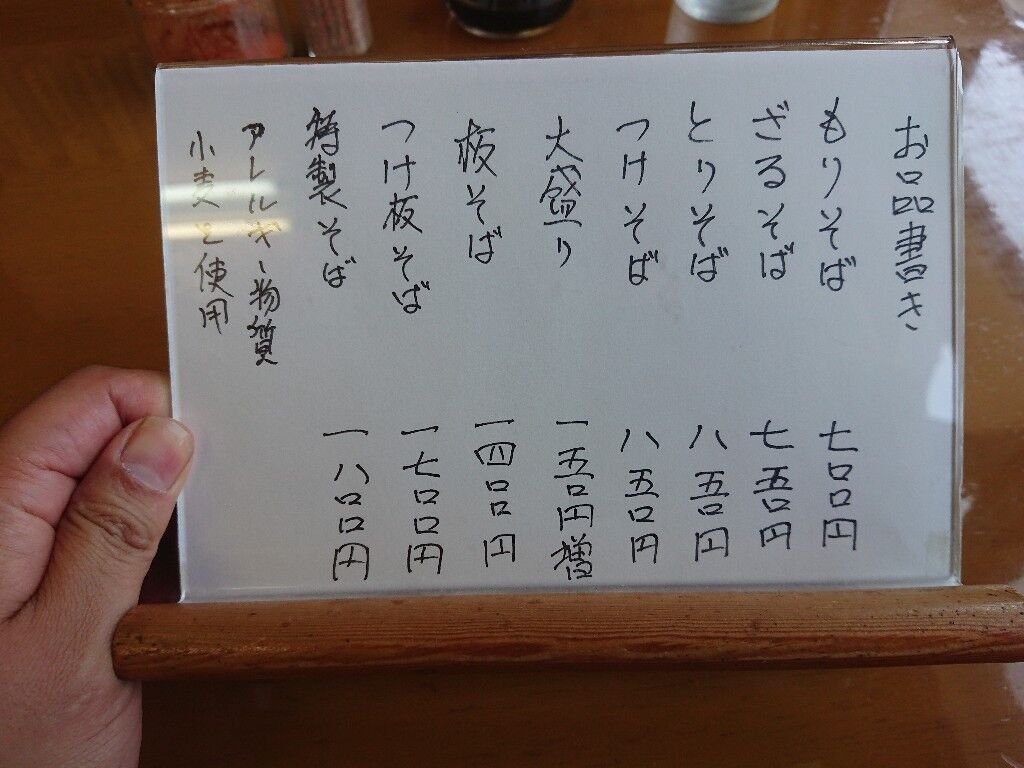 お品書き
もりそば 七〇〇円
ざるそば 七五〇円
とりそば 八五〇円
つけそば 八五〇円
大盛り 一五〇円増
板そば 一四〇〇円
つけ板そば 一七〇〇円
特製そば 一八〇〇円
アレルギー物質
小麦を使用